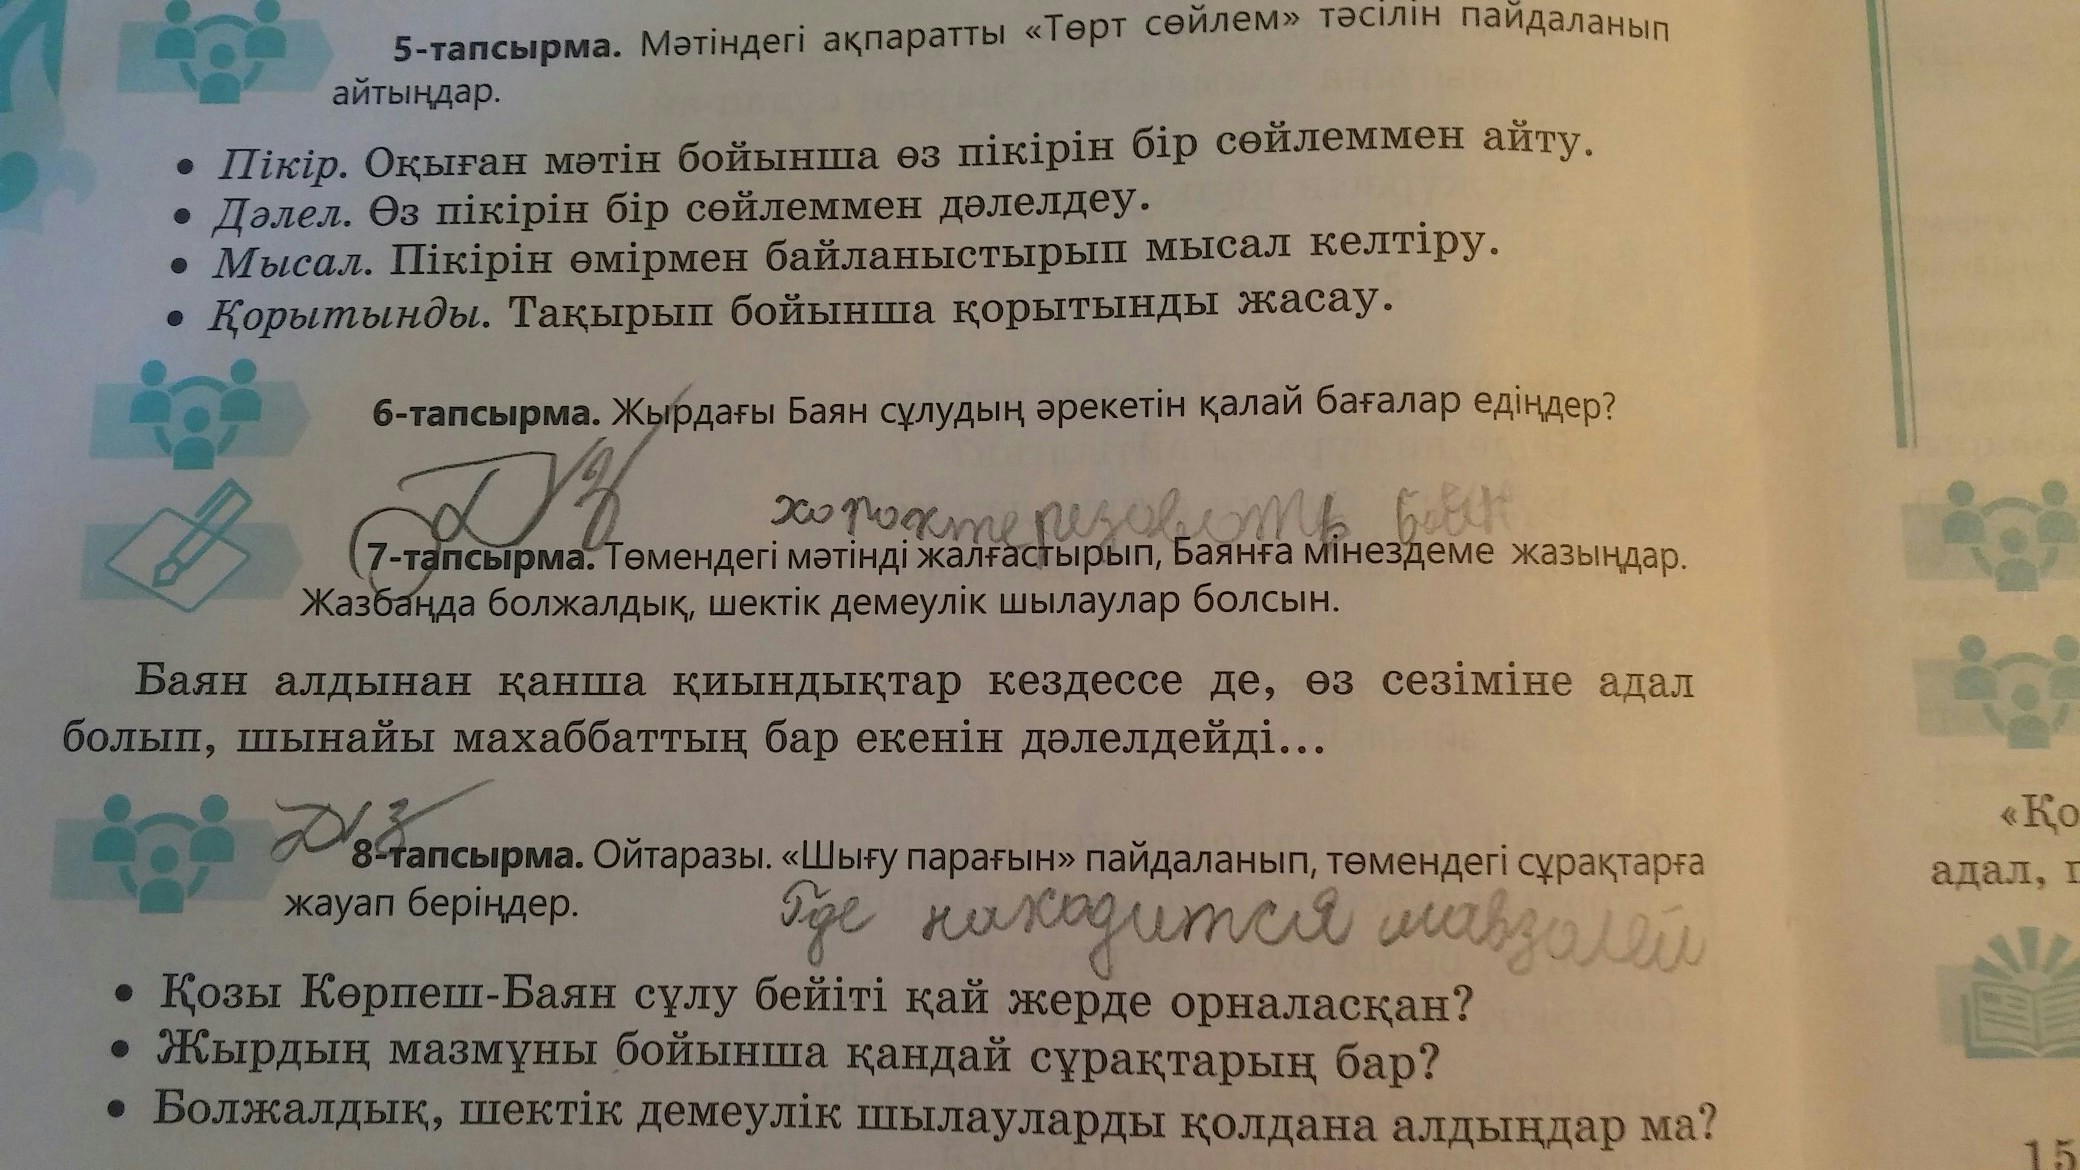 5-тапсырма. Мәтіндегі ақпаратты «Төрт сөйлем» тәсілін пайдаланып
айтыңдар.
• Пікір. Оқыған мәтін бойынша өз пікірін бір сөйлеммен айту.
• Дәлел. Өз пікірін бір сөйлеммен дәлелдеу.
• Мысал. Пікірін өмірмен байланыстырып мысал келтіру.
• Қорытынды. Тақырып бойынша қорытынды жасау.
6-тапсырма. Жырдағы Баян сұлудың әрекетін қалай бағалар едіңдер?
Д/з
7-тапсырма. Төмендегі мәтінді жалғастырып, Баянға мінездеме жазыңдар.
Жазбаңда болжалдық, шектік демеулік шылаулар болсын.
Баян алдынан қанша қиындықтар кездессе де, өз сезіміне адал
болып, шынайы махаббаттың бар екенін дәлелдейді...
Д/з
8-тапсырма. Ойтаразы. «Шығу парағын» пайдаланып, төмендегі сұрақтарға
жауап беріңдер.
Где находится мавзолей
• Қозы Көрпеш-Баян сұлу бейіті қай жерде орналасқан?
• Жырдың мазмұны бойынша қандай сұрақтарың бар?
• Болжалдық, шектік демеулік шылауларды қолдана алдыңдар ма?
«Қо
адал,
15